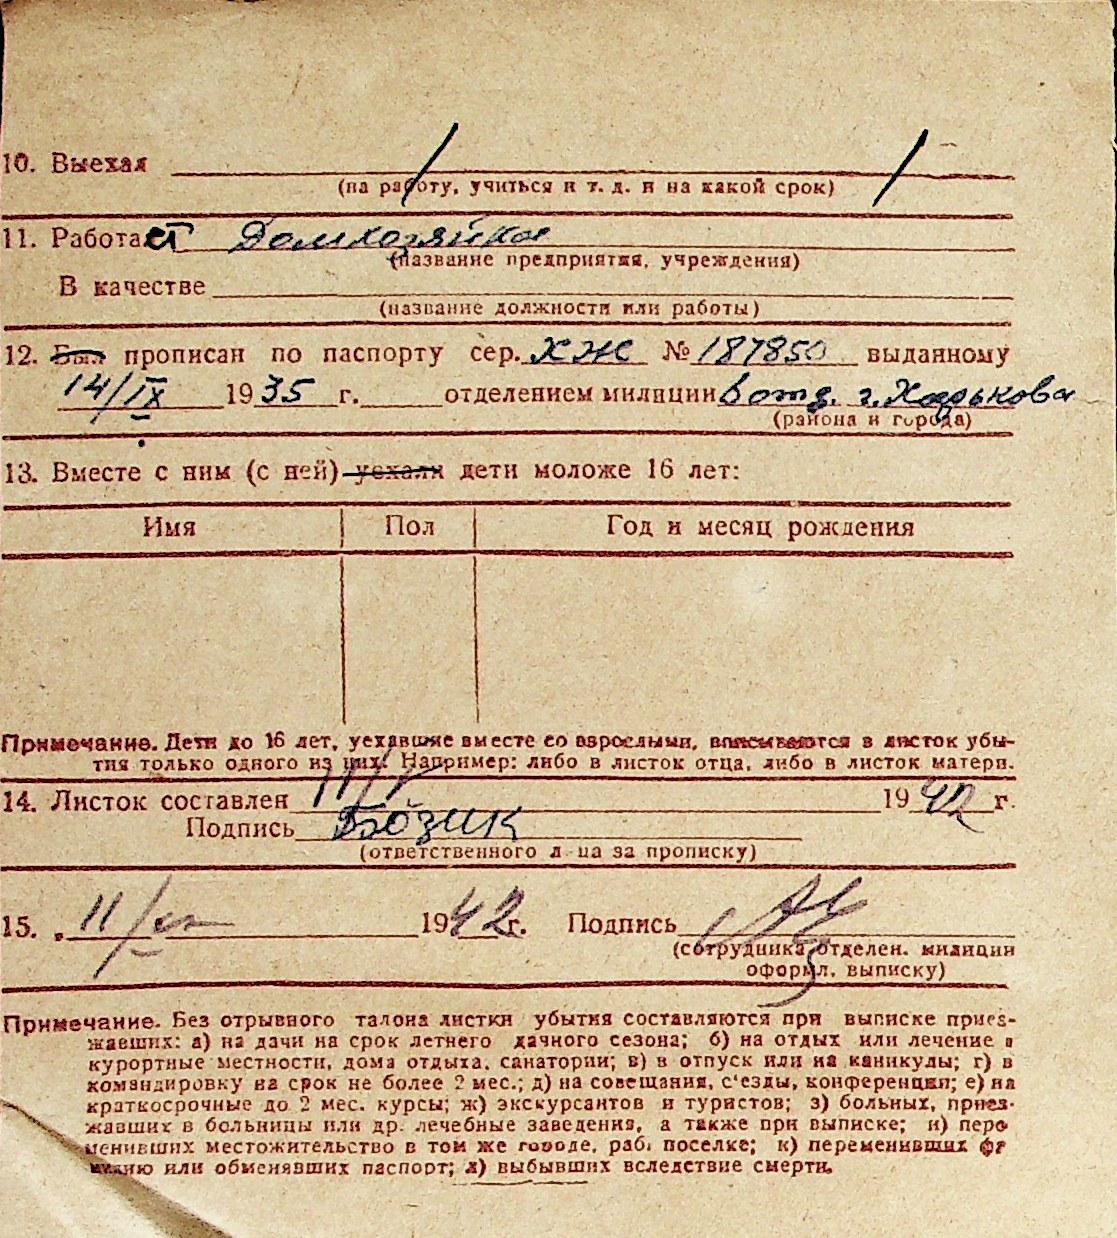 10. Выехал
(на работу, учиться и т. д. и на какой срок)
11. Работает Домхозяйка
(название предприятия, учреждения)
В качестве
(название должности или работы)
12. Был прописан по паспорту сер. ХЖС № 187850 выданному
14/IX 1935 г. отделением милиции 6 отд. г. Харькова
(района и города)
13. Вместе с ним (с ней) уехали дети моложе 16 лет:
Имя Пол Год и месяц рождения
Примечание. Дети до 16 лет, уехавшие вместе со взрослыми, вписываются в листок убы-
тия только одного из них. Например: либо в листок отца, либо в листок матери.
14. Листок составлен 11/V 1942 г.
Подпись
(ответственного лица за прописку)
15. „ 11/ 1942 г. Подпись
(сотрудника отделен. милиции
оформл. выписку)
Примечание. Без отрывного талона листки убытия составляются при выписке приез-
жавших: а) на дачи на срок летнего дачного сезона; б) на отдых или лечение в
курортные местности, дома отдыха, санатории; в) в отпуск или на каникулы; г) в
командировку на срок не более 2 мес.; д) на совещания, с'езды, конференции; е) на
краткосрочные до 2 мес. курсы; ж) экскурсантов и туристов; з) больных, приез-
жавших в больницы или др. лечебные заведения, а также при выписке; и) пере
менивших местожительство в том же городе, раб. поселке; к) переменивших фа
милию или обменявших паспорт; л) выбывших вследствие смерти.